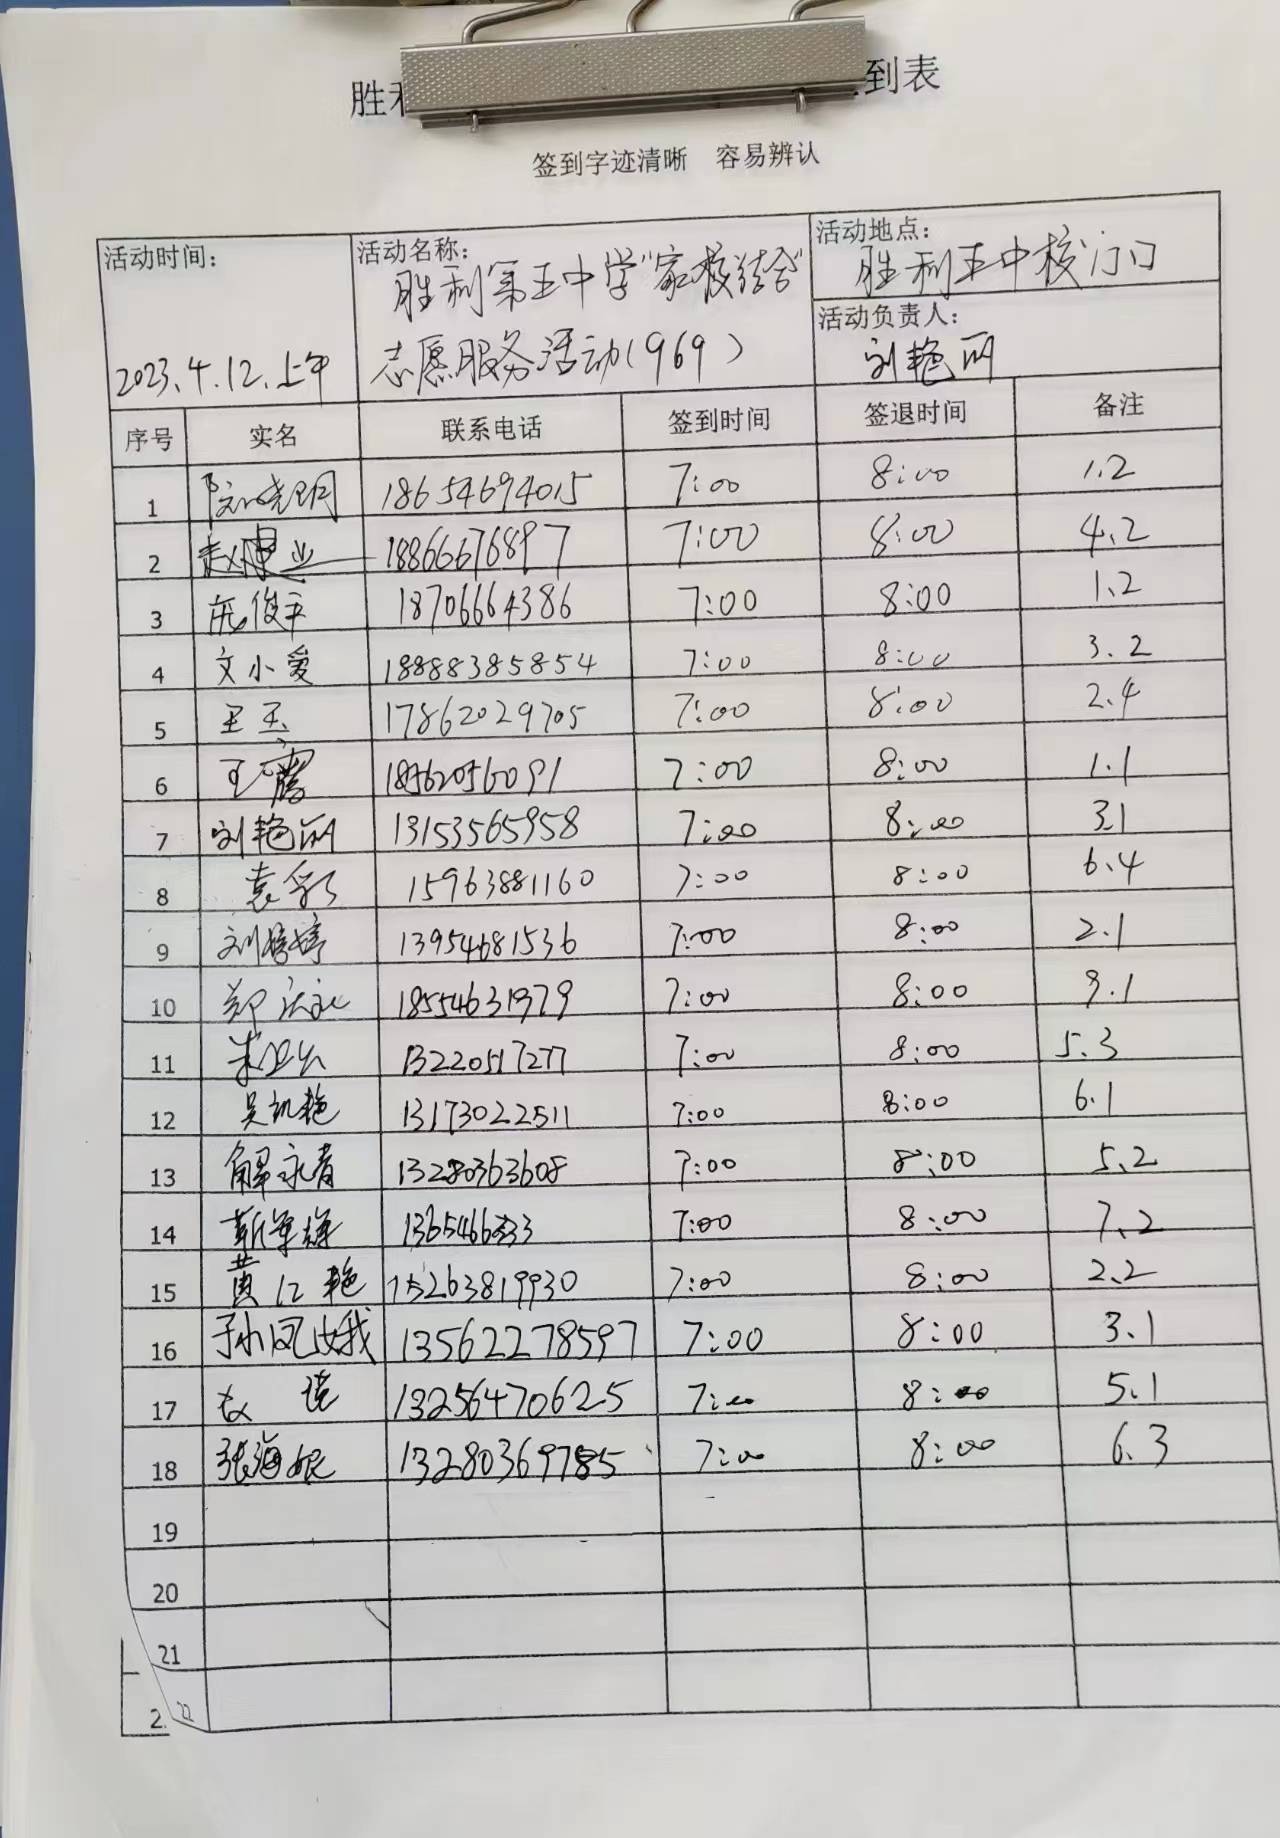 胜利 到表
签到字迹清晰 容易辨认
活动时间： 活动名称： 活动地点：
胜利第五中学“家校结合” 胜利五中校门口
活动负责人：
2023.4.12.上午 志愿服务活动(969) 刘艳丽
序号 实名 联系电话 签到时间 签退时间 备注
1 18654694015 7:00 8:00 1.2
2 赵建业 18866676897 7:00 8:00 4.2
3 庞俊平 18706664386 7:00 8:00 1.2
4 文小爱 18888385854 7:00 8:00 3.2
5 王玉 17862029705 7:00 8:00 2.4
6 王 18562056091 7:00 8:00 1.1
7 刘艳丽 13153565958 7:00 8:00 3.1
8 袁彩 15963881160 7:00 8:00 6.4
9 刘婷婷 13954681536 7:00 8:00 2.1
10 郑 18554631979 7:00 8:00 3.1
11 13220517277 7:00 8:00 5.3
12 吴凯艳 13173022511 7:00 8:00 6.1
13 解永青 13280363608 7:00 8:00 5.2
14 靳军辉 7:00 8:00 7.2
15 黄江艳 15263819930 7:00 8:00 2.2
16 孙凤娥 13562278597 7:00 8:00 3.1
17 13256470625 7:00 8:00 5.1
18 张海妮 13280369785 7:00 8:00 6.3
19
20
21
2 22